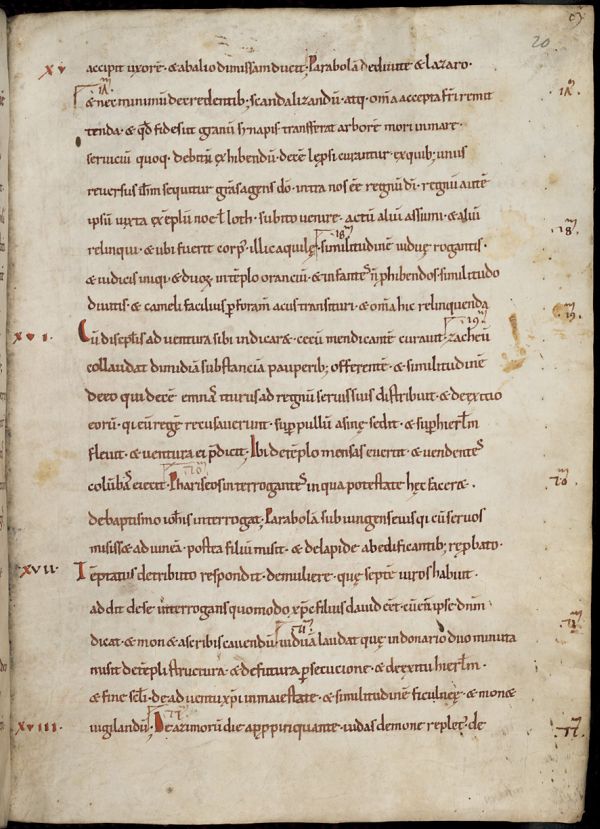 20
xv accipit uxorē. & ab alio dimissam ducit; Parabolā de divite & lazaro.
17
& ne x minimū de credentib; scandalizandū. atq; om̄a accepta fr̄i remit
tenda. & qđ fides ut granū synapis transferat arborē mori in mare.
serviciū quoq; debitū exhibendū. decē lępsi curantur. ex quib; unus
reversus dn̄m sequitur grās agens dō. intra nos eē regnū dī. regnū autē
ipsū iuxta exēplū noe & loth. subito venire. actū alivi assumi. & aliū
18
relinqui. & ubi fuerit corp' illic aquilę. similitudinē viduę rogantis.
& iudicis iniqi. & duoꝝ in tēplo orantiū. & infantes n̄ phibendos. similitudo
divitis & cameli facilius p foramē acus transituri. & om̄a hic relinquenda
19
xvi. Cū discipłis adventura sibi indicar&. cecū mendicantē curavit. zacheū
collaudat dimidiā substanciā pauperib; offerentē. & similitudinē
de eo qui decē emnas iturus ad regnū servis suis distribuit. & de exitio
eorū. qi eū regē recusaverunt. sup pullū asinę sedit. & sup hierłm
flevit. & ventura ei p̄dicit. Ibi de tēplo mensas evertit. & vendentes
20
colūbas eiecit. Phariseos interrogantes in qua potestate hęc facer&.
de baptismo ioħis interrogat; Parabolā subiungens eius qi cū servos
misiss& ad vineā. postea filiū misit. & de lapide ab edificantib; reprobato.
xvii. Tēptatus de tributo respondit. de muliere. quę septē viros habuit.
addit de se interrogans quomodo xp̄c filius david eēt. cū eū ipse dn̄m
21
dicat. & mon& a scribis cavendū. viduā laudat quę in donario duo minuta
misit. de tēpli structura. & de futura psecucione. & de exitu hierłm.
& fine sc̄li. de adventu xp̄i in maiestate. & similitudinē ficulneę. & mon&
22
xviii. vigilandū. De azimorū die appropinquante. iudas demone replet'. de